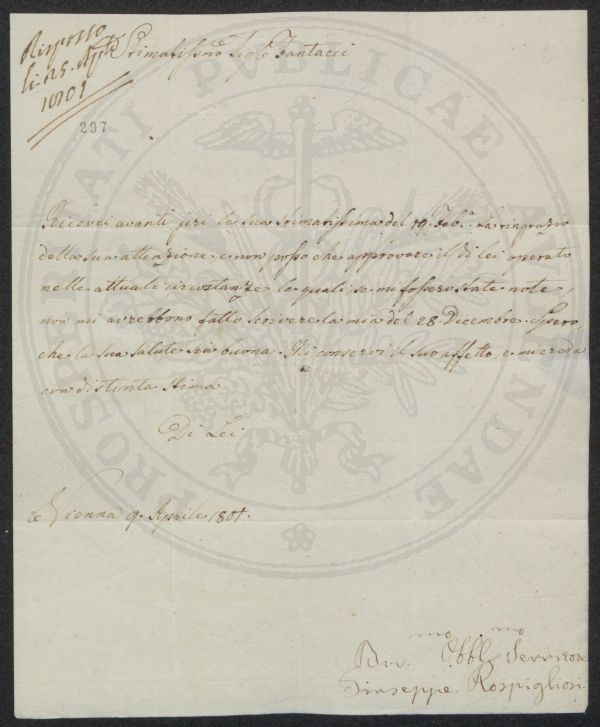 Risposto
li 25. Aple
1801
Stimatissmo Sigre Fantacci
207
PROSPERITATI PUBLICAE AUGENDAE
Ricevei avanti jeri la sua stimatissima del 19. Febo. La ringrazio
della sua attenzione, e non posso che approvare il di lei operato
nelle attuali circostanze le quali se mi fossero state note,
non mi avrebbono fatto scrivere la mia del 28. Dicembre. Spero,
che la sua salute sia buona. Mi conservi il suo affetto, e mi creda
con distinta stima
Di Lei
Vienna 9. Aprile 1801.
Div.mo Obbl.mo Servitore
Giuseppe Rospigliosi